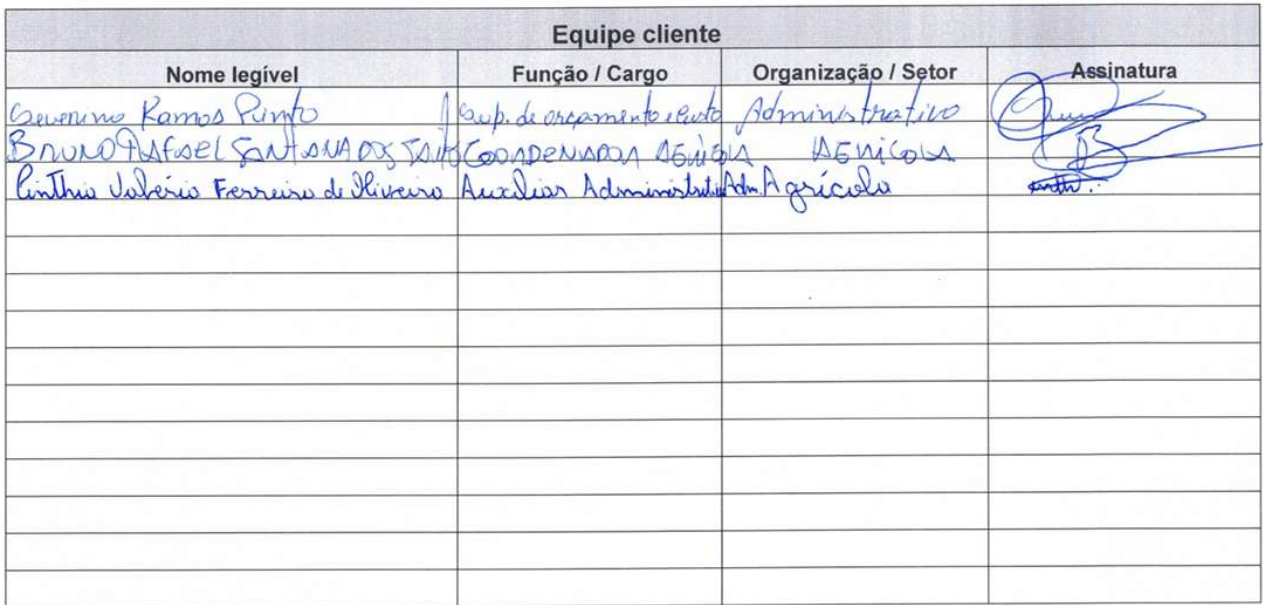 Equipe cliente
Nome legível Função / Cargo Organização / Setor Assinatura
Severino Ramos Pinto Sup. de orçamento e custo Administrativo
BRUNO RAFAEL SANTANA DOS COORDENADOR AGRICOLA AGRICOLA
Cinthia Valéria Ferreira de Oliveira Auxiliar Administrativo Adm. Agrícola